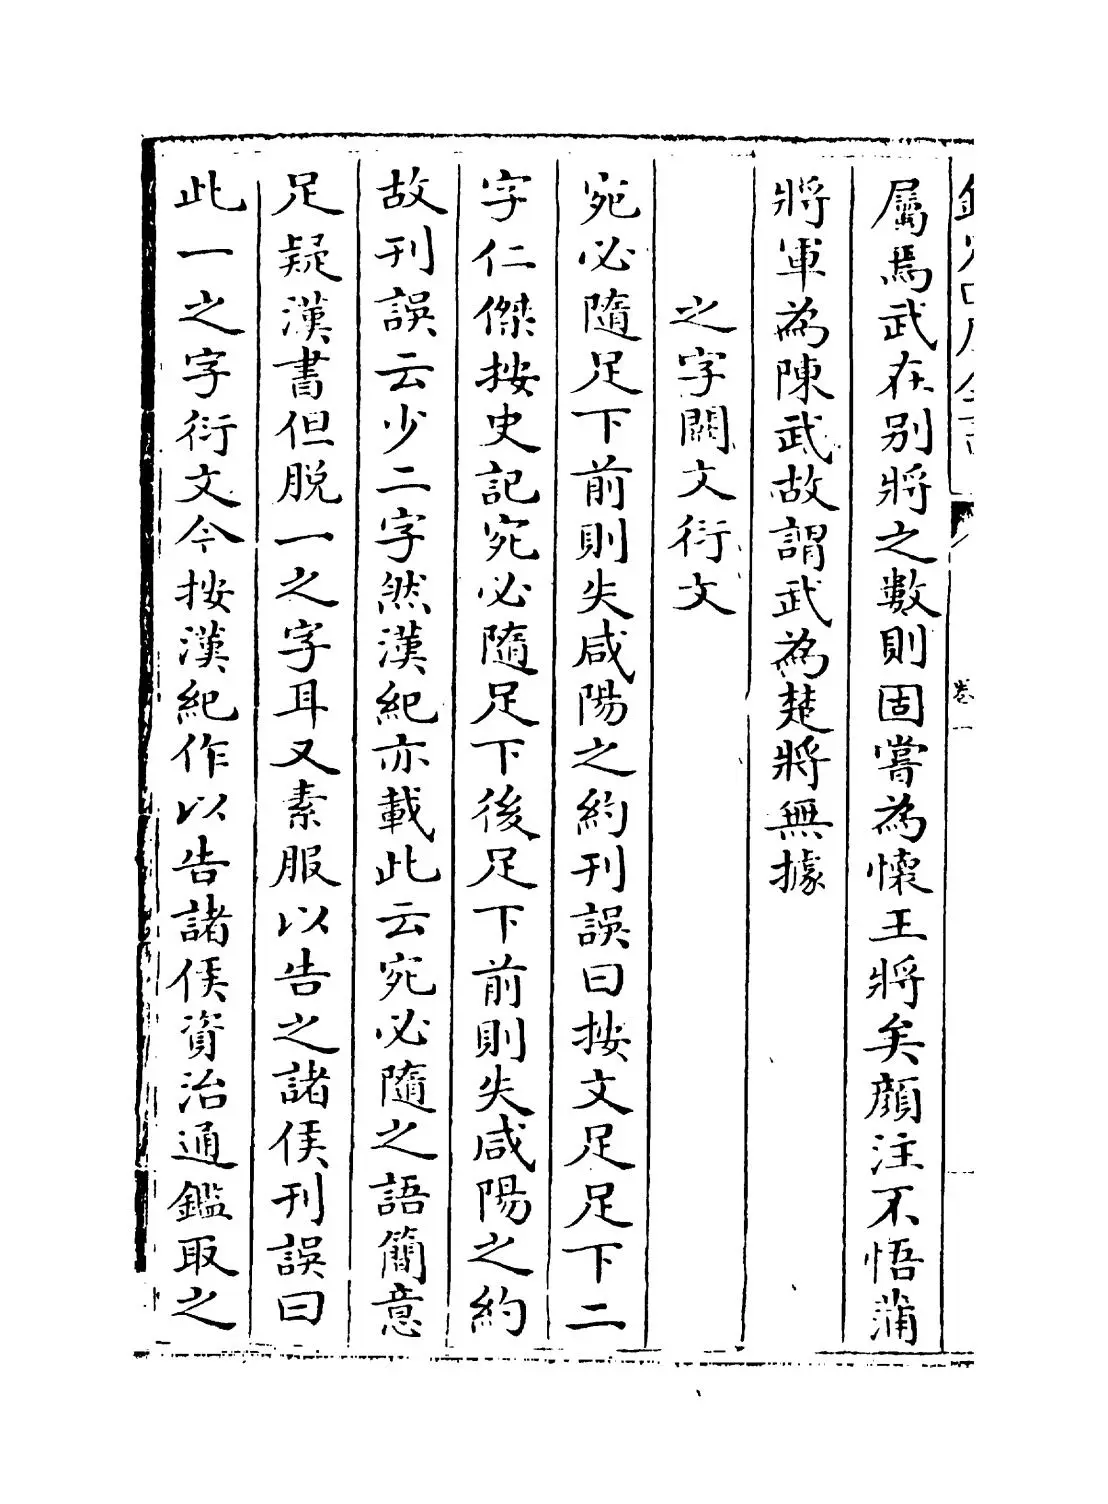 欽定四庫全書
卷一
屬焉武在別將之數則固嘗為懷王將矣顔注不悟蒲
將軍為陳武故謂武為楚將無據
之字闕文衍文
宛必隨足下前則失咸陽之約刊誤曰按文足足下二
字仁傑按史記宛必隨足下後足下前則失咸陽之約
故刊誤云少二字然漢紀亦載此云宛必隨之語簡意
足疑漢書但脱一之字耳又素服以告之諸侯刊誤曰
此一之字衍文今按漢紀作以告諸侯資治通鑑取之